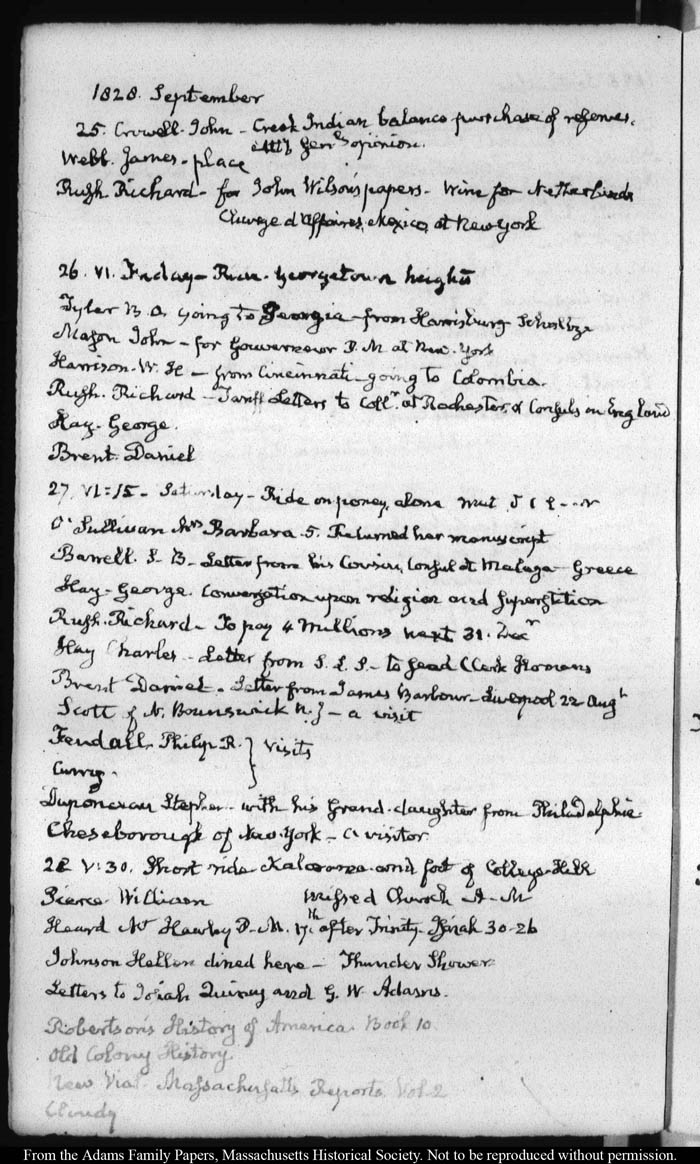 1828. September
25. Crowell. John - Creek Indian balance purchase of reserves.
Att'y Genl's opinion.
Webb. James - place
Rush Richard - for John Wilson's papers - Wine for Netherlands
Chargé d'affaires, Mexico, at New York
26. VI. Friday - Georgetown heights
Tyler B. O. going to Georgia - from Harrisburg Schultze
Mason John - for Gouverneur P. M at New-York
Harrison. W. H - from Cincinnati - going to Colombia.
Rush. Richard - Tariff Letters to Collr. at Rochester, & Consuls in England
Hay. George.
Brent. Daniel
27. VI:15. Saturday - Ride on poney, alone met
O'Sullivan Mrs Barbara S. Returned her manuscript
Barrell. S. B - Letter from his Cousin, Consul at Malaga - Greece
Hay - George. Conversation upon religion and superstition
Rush. Richard - To pay 4 Millions next 31. Decr
Hay Charles - Letter from S. L. S. - to read Clerk Homans
Brent Daniel. Letter from James Barbour - Liverpool 22 Augt
Scott of N. Brunswick N. J - a visit
Fendall. Philip R. } visits
Curry.
Duponceau Stephen - with his Grand-daughter from Philadelphia
Cheseborough of New-York - a visitor
28 V:30. Short ride Kalorama and foot of College Hill
Pierce William Missed Church A. M
Heard Mr Hawley P. M. 17th after Trinity Isaiah 30-26
Johnson Hellen dined here - Thunder Shower
Letters to Josiah Quincy and G. W Adams.
Robertson's History of America. Book 10
Old Colony History.
Massachusetts Reports. Vol. 2
Cloudy
From the Adams Family Papers, Massachusetts Historical Society. Not to be reproduced without permission.